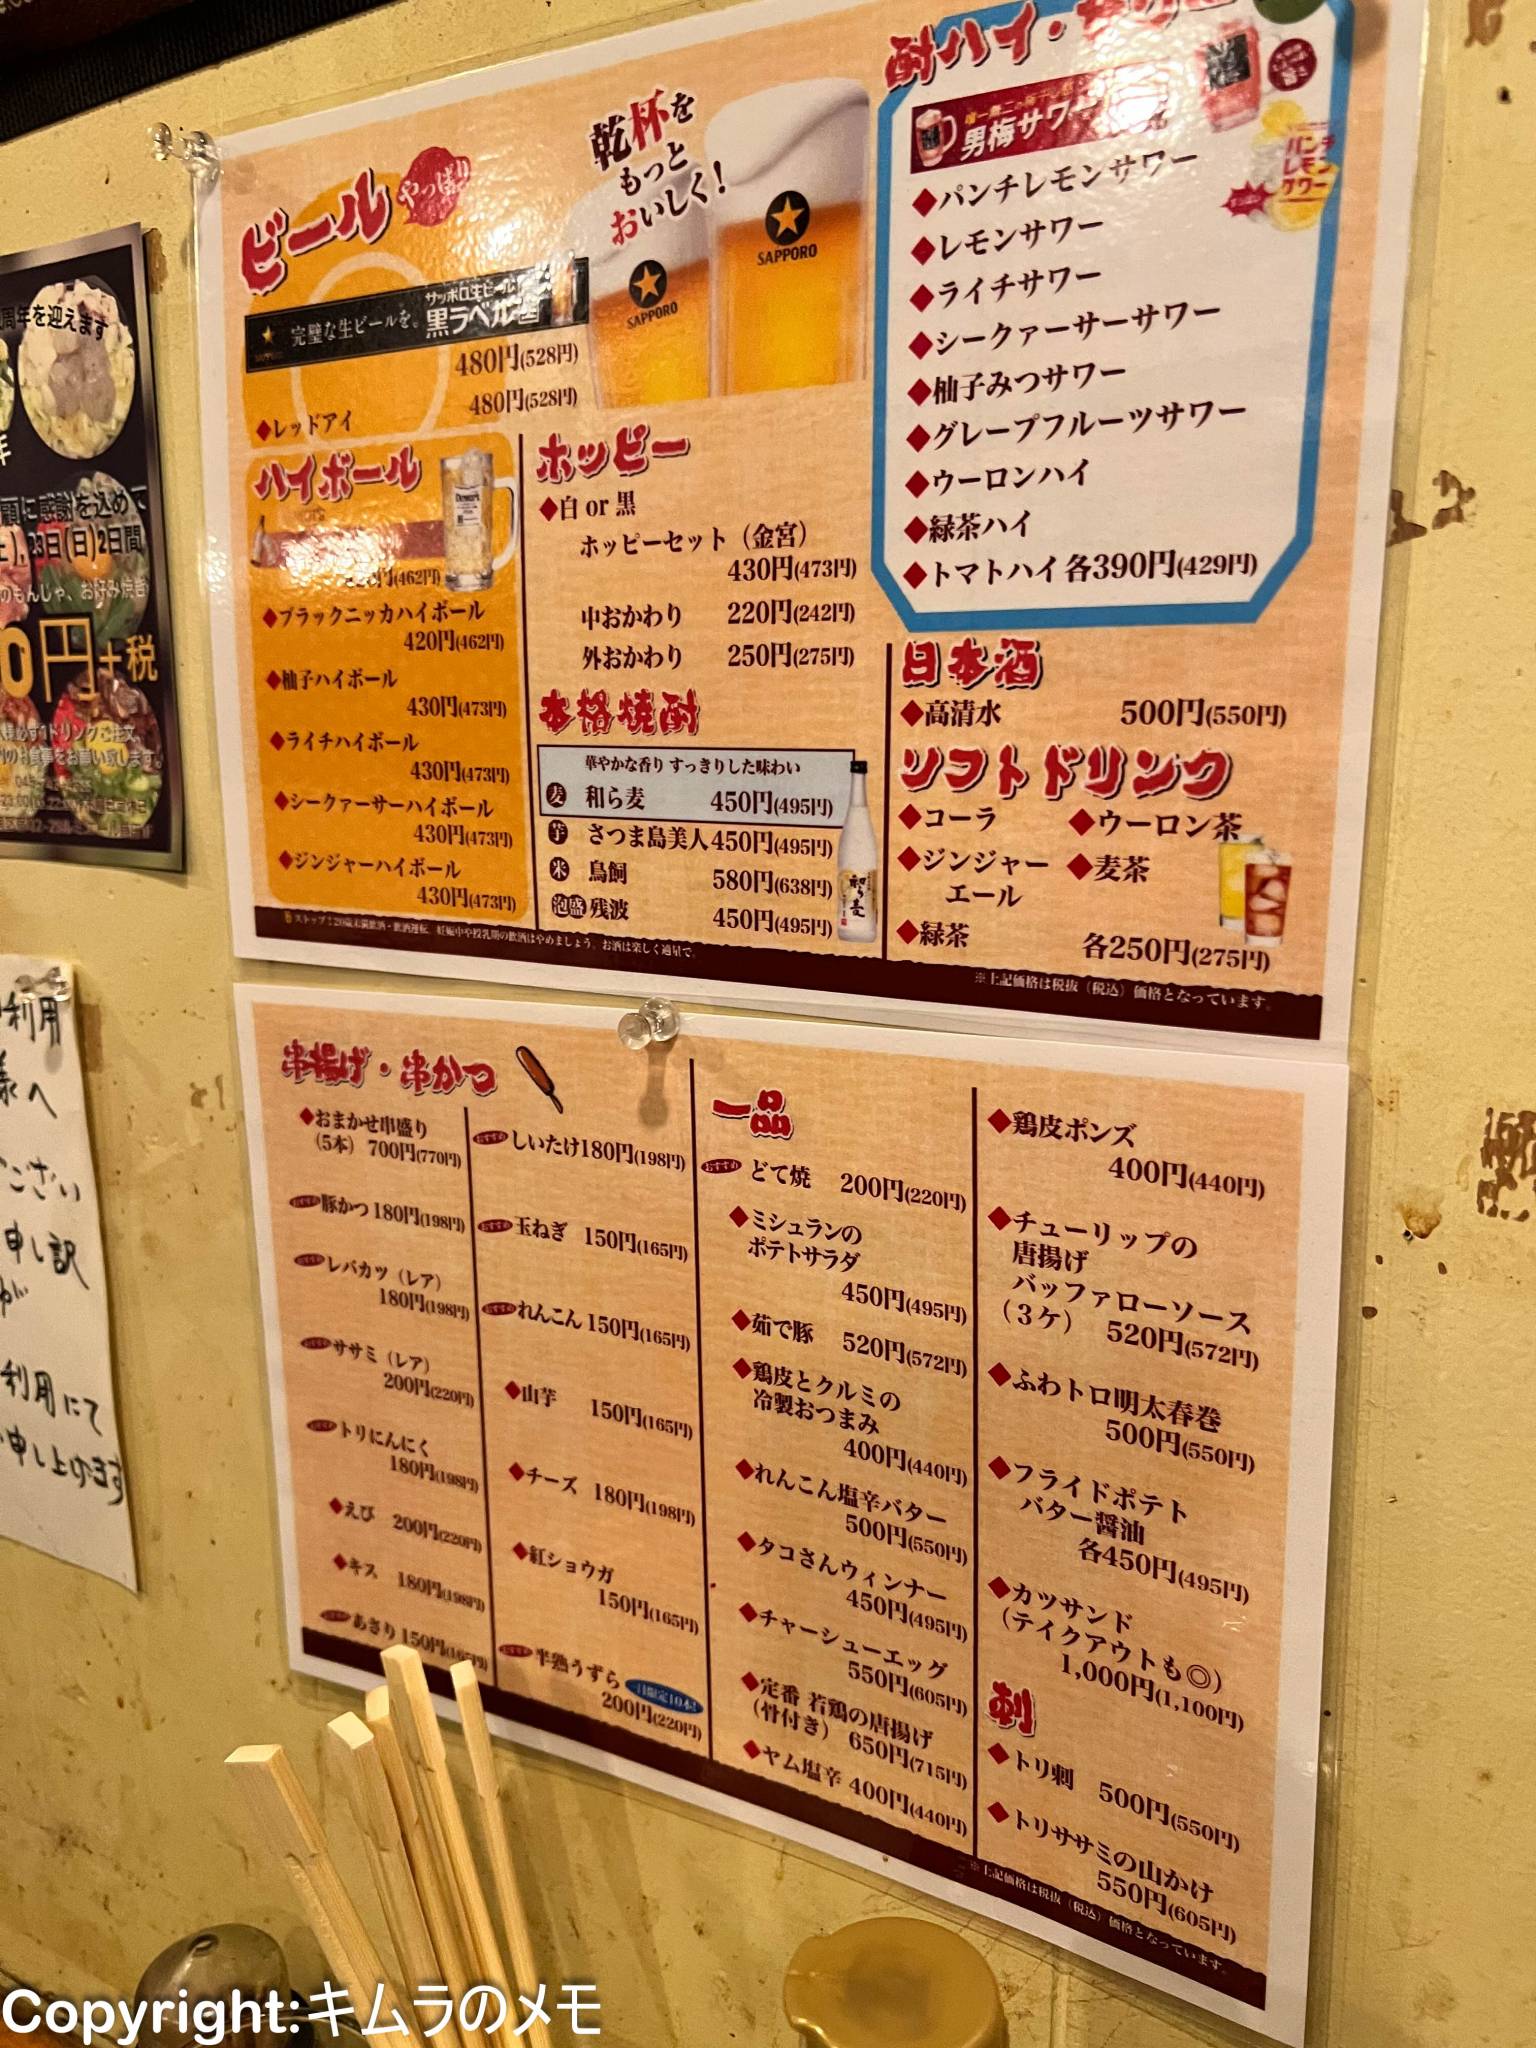 ビール
やっぱり
乾杯を
もっと
おいしく!
SAPPORO
SAPPORO
完璧な生ビールを。
サッポロ生ビール
黒ラベル
480円(528円)
◆レッドアイ 480円(528円)
ハイボール
Dewar's
(462円)
◆ブラックニッカハイボール
420円(462円)
◆柚子ハイボール
430円(473円)
◆ライチハイボール
430円(473円)
◆シークァーサーハイボール
430円(473円)
◆ジンジャーハイボール
430円(473円)
ホッピー
◆白 or 黒
ホッピーセット（金宮）
430円(473円)
中おかわり 220円(242円)
外おかわり 250円(275円)
本格焼酎
華やかな香り すっきりした味わい
麦 和ら麦 450円(495円)
芋 さつま島美人 450円(495円)
米 鳥飼 580円(638円)
泡盛 残波 450円(495円)
和ら麦
ストップ!20歳未満飲酒・飲酒運転。妊娠中や授乳期の飲酒はやめましょう。お酒は楽しく適量で。
酎ハイ・
男梅サワー
パンチ
レモン
サワー
◆パンチレモンサワー
◆レモンサワー
◆ライチサワー
◆シークァーサーサワー
◆柚子みつサワー
◆グレープフルーツサワー
◆ウーロンハイ
◆緑茶ハイ
◆トマトハイ 各390円(429円)
日本酒
◆高清水 500円(550円)
ソフトドリンク
◆コーラ ◆ウーロン茶
◆ジンジャー ◆麦茶
エール
◆緑茶
各250円(275円)
※上記価格は税抜（税込）価格となっています。
串揚げ・串かつ
◆おまかせ串盛り
（5本）700円(770円)
おすすめ 豚かつ 180円(198円)
おすすめ レバカツ（レア）
180円(198円)
おすすめ ササミ（レア）
200円(220円)
おすすめ トリにんにく
180円(198円)
◆えび 200円(220円)
◆キス 180円(198円)
おすすめ あさり 150円(165円)
おすすめ しいたけ 180円(198円)
おすすめ 玉ねぎ 150円(165円)
おすすめ れんこん 150円(165円)
◆山芋 150円(165円)
◆チーズ 180円(198円)
◆紅ショウガ
150円(165円)
おすすめ 半熟うずら 一日限定10本!
200円(220円)
一品
おすすめ どて焼 200円(220円)
◆ミシュランの
ポテトサラダ
450円(495円)
◆茹で豚 520円(572円)
◆鶏皮とクルミの
冷製おつまみ
400円(440円)
◆れんこん塩辛バター
500円(550円)
◆タコさんウィンナー
450円(495円)
◆チャーシューエッグ
550円(605円)
◆定番 若鶏の唐揚げ
（骨付き） 650円(715円)
◆ヤム塩辛 400円(440円)
◆鶏皮ポンズ
400円(440円)
◆チューリップの
唐揚げ
バッファローソース
（3ケ） 520円(572円)
◆ふわトロ明太春巻
500円(550円)
◆フライドポテト
バター醤油
各450円(495円)
◆カツサンド
（テイクアウトも◎）
1,000円(1,100円)
刺
◆トリ刺 500円(550円)
◆トリササミの山かけ
550円(605円)
※上記価格は税抜（税込）価格となっています。
周年を迎えます
年
顧に感謝を込めて
土),23日(日)2日間
のもんじゃ、お好み焼き
0円+税
利用
様へ
ござい
申し訳
が
利用にて
申し上げます
Copyright:キムラのメモ